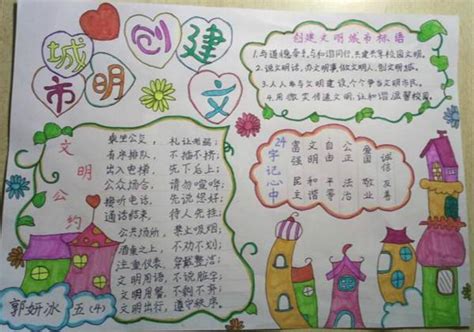 创建
文明
城市
创建文明城市标语
1.与道德牵手,与和谐同行,共建共享校园文明。
2.说文明话,办文明事,做文明人,创文明城。
3.人人参与文明建设,个个争当文明市民。
4.用微笑传递文明,让和谐温馨校园。
文明公约
乘坐公交, 礼让老弱;
有序排队, 不插不挤;
出入电梯, 先下后上;
公众场合, 请勿喧哗;
接听电话, 先说您好;
通话结束, 待人先挂;
公共场所, 禁止吸烟;
酒桌之上, 不劝不划;
注重仪表, 穿戴整洁;
文明用语, 不说脏字;
文明用餐, 不剩不开;
文明出行, 遵守秩序。
24字记心中
富强 民主
文明 和谐
自由 平等
公正 法治
爱国 敬业
诚信 友善
郭妍冰 五(4)